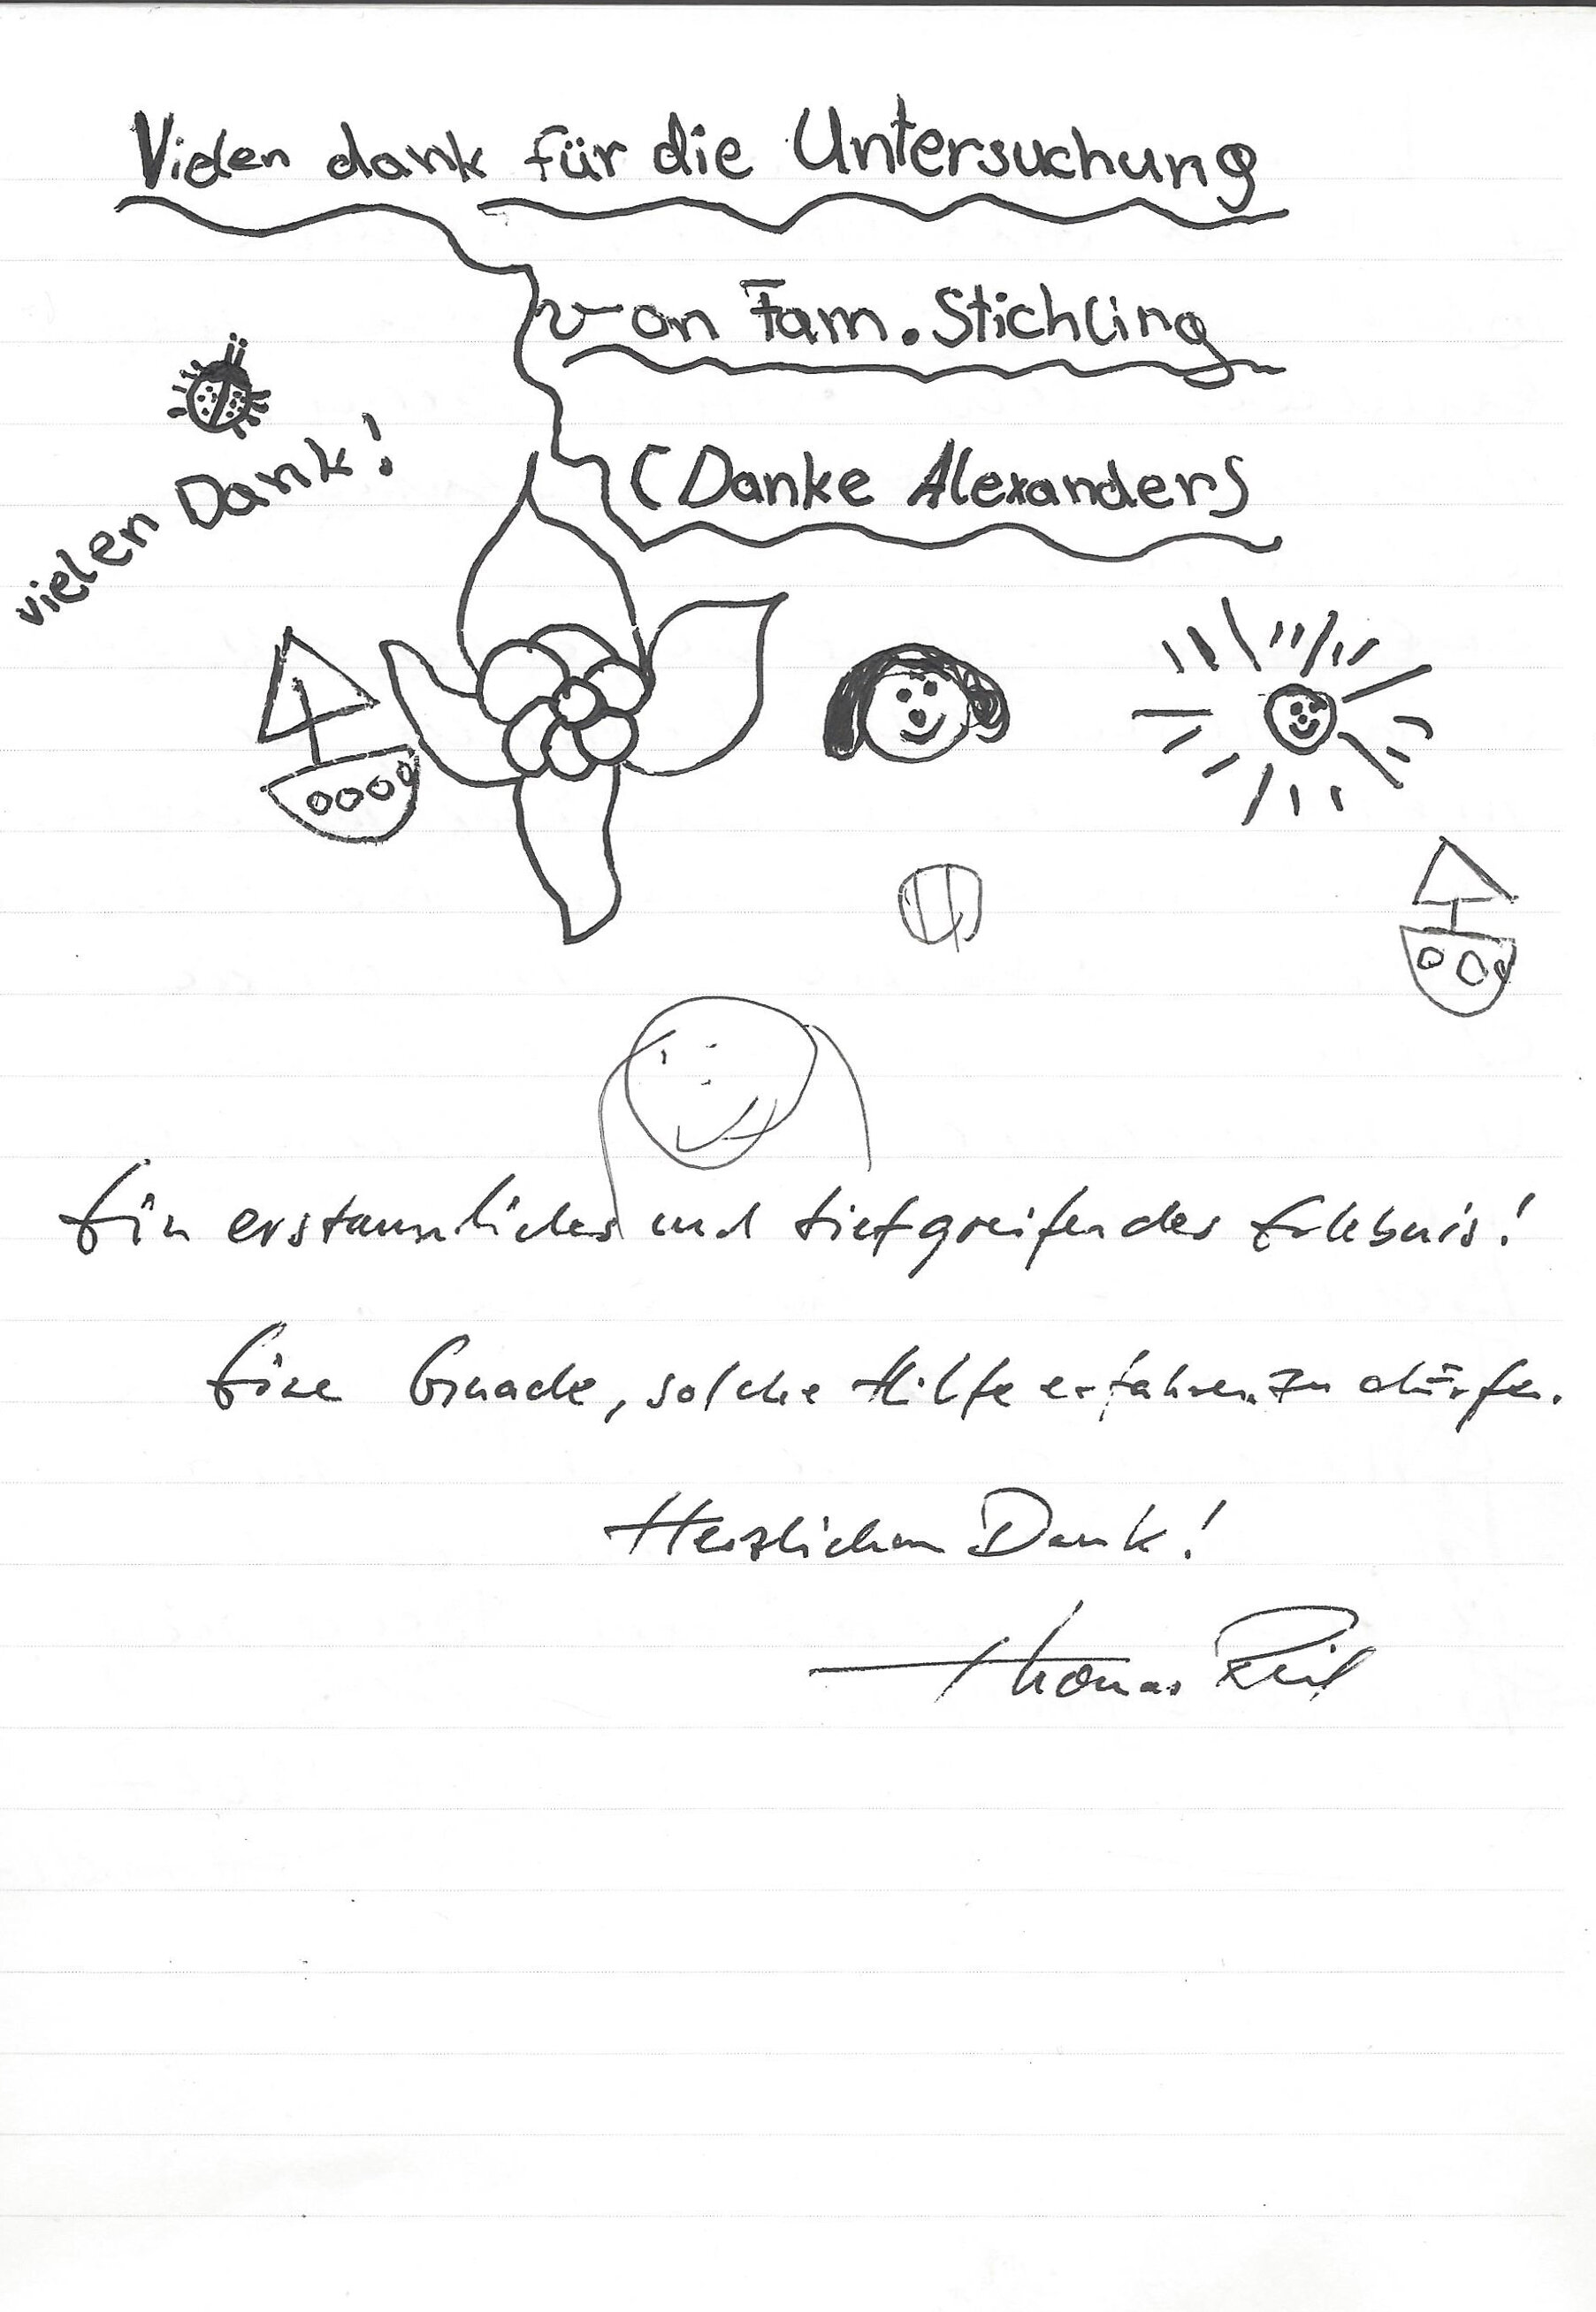 Vielen dank für die Untersuchung
von Fam. Stichling
vielen Dank!
(Danke Alexander)
Ein erstaunliches und tiefgreifendes Erlebnis!
Eine Gnade, solche Hilfe erfahren zu dürfen.
Herzlichen Dank!
Thomas